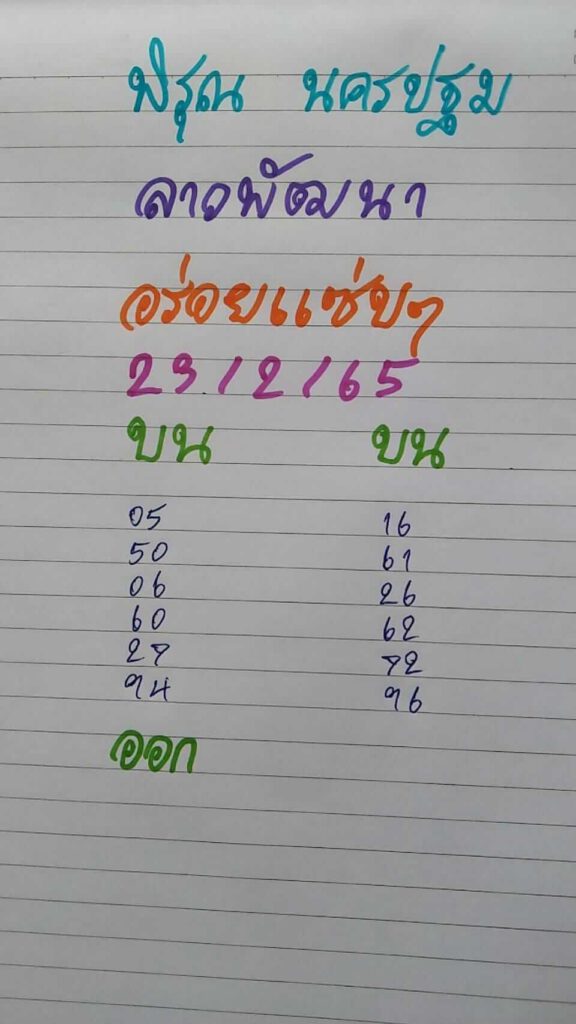 พิรุณ นครปฐม
ลาวพัฒนา
อร่อยแซ่บๆ
23/2/65
บน บน
05 16
50 61
06 26
60 62
27 72
94 96
ออก